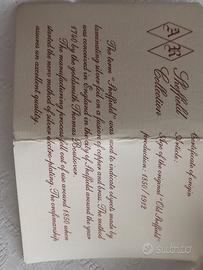 A R
Sheffield
Collection
Certificate of origin
Article:
Sign of the original "Old Sheffield"
production: 1850 / 1912
The term "Sheffield" was used to indicate objects made by
laminating silver foil on a piece of copper and brass. The method
was conceived in England in the city of Sheffield around the year
1740 by the goldsmith Thomas Boulsover.
The manufacturing process fell out of use around 1850 when
started the more method of silver electro-plating. The craftmanship
assures an excellent quality.
subito